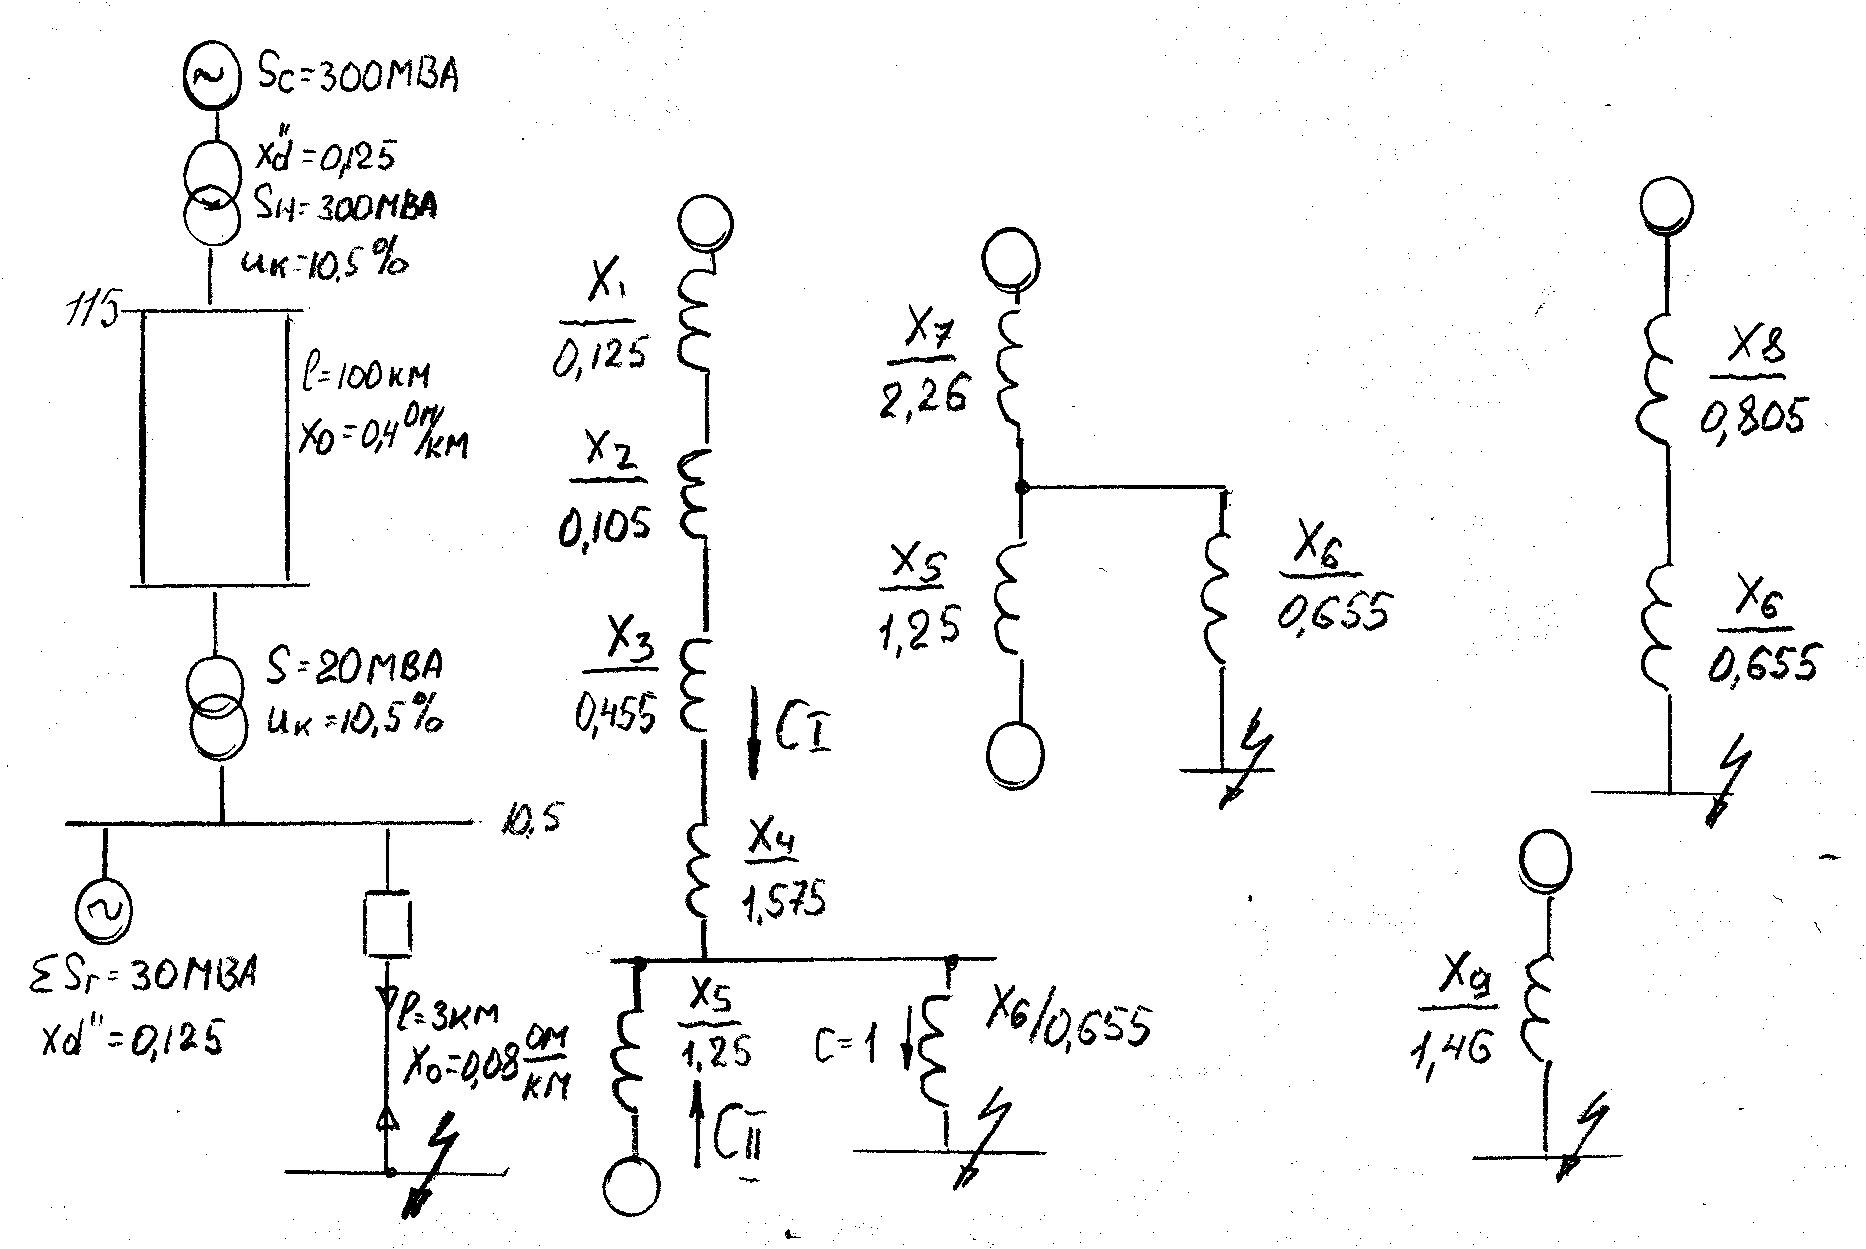 Sс=300МВА
xd"=0,125
Sн=300МВА
uк=10,5%
115
l=100км
x0=0,4 Ом/км
S=20МВА
uк=10,5%
10,5
ΣSг=30МВА
xd"=0,125
l=3км
x0=0,08 Ом/км
X1
0,125
X2
0,105
X3
0,455
CI
X4
1,575
X5
1,25
CII
C=1
X6/0,655
X7
2,26
X5
1,25
X6
0,655
X8
0,805
X6
0,655
X9
1,46